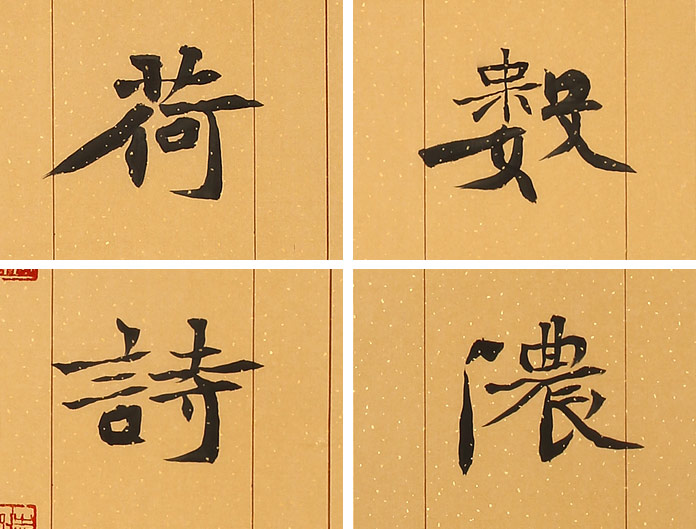 荷 數
詩 濃